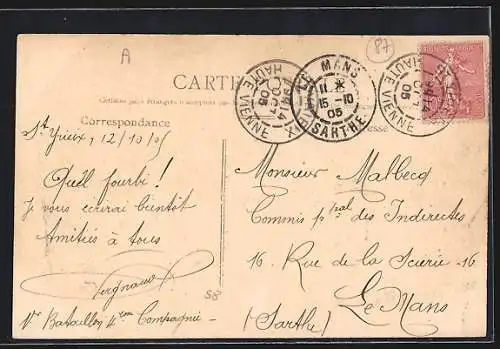 A
87
CARTE
Correspondance
LE MANS
11 *
15-10
05
SARTHE
HAUTE VIENNE
OCT
05
HAUTE VIENNE
OCT
05
St Yrieix, 12/10/05
Quel fourbi !
Je vous écrirai bientôt
Amitiés à tous
Vergnaud
58
1er Bataillon 4eme Compagnie
Monsieur Malbecq
Commis pal des Indirectes
16. Rue de la Scierie - 16
Le Mans
(Sarthe)